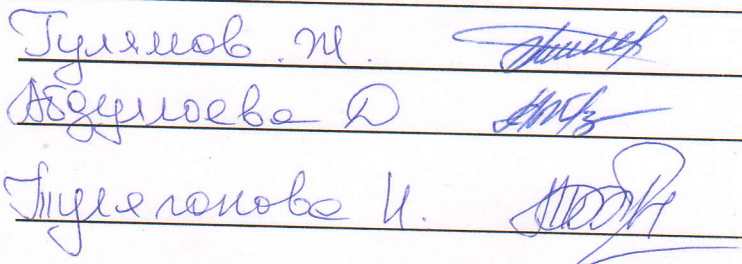 Гулямов. М.
Абдуллоева Д
Туляганова И.